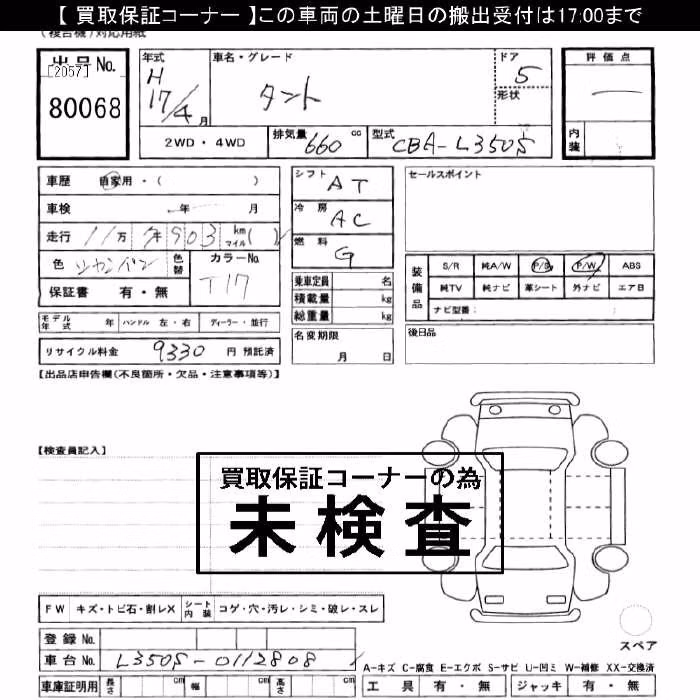 【 買取保証コーナー 】この車両の土曜日の搬出受付は17:00まで
(複合機)対応用紙
出品No.
[2057]
80068
年式
H
17/4月
車名・グレード
タント
ドア
5
形状
評価点
内装
2WD・4WD
排気量 660 cc
型式 CBA-L350S
車歴 自家用・( )
車検 年 月
走行 11万 903 km マイル ( )
色 シャンパン 色替
カラーNo. T17
保証書 有・無
シフト AT
冷房 AC
燃料 G
乗車定員 名
積載量 kg
総重量 kg
セールスポイント
装備品
S/R 純A/W P/S P/W ABS
純TV 純ナビ 革シート 外ナビ エアB
ナビ型番:
モデル年式 年 ハンドル 左・右 ディーラー・並行
名変期限
月 日
後日品
リサイクル料金 9330 円 預託済
【出品店申告欄(不良箇所・欠品・注意事項等)】
【検査員記入】
買取保証コーナーの為
未検査
FW キズ・トビ石・割レX シート内装 コゲ・穴・汚レ・シミ・破レ・スレ
登録No.
スペア
車台No. L350S-0112808
A-キズ C-腐食 E-エクボ S-サビ U-凹ミ W-補修 XX-交換済
車庫証明用 長さ cm 幅 cm 高さ cm
工具 有・無 ジャッキ 有・無